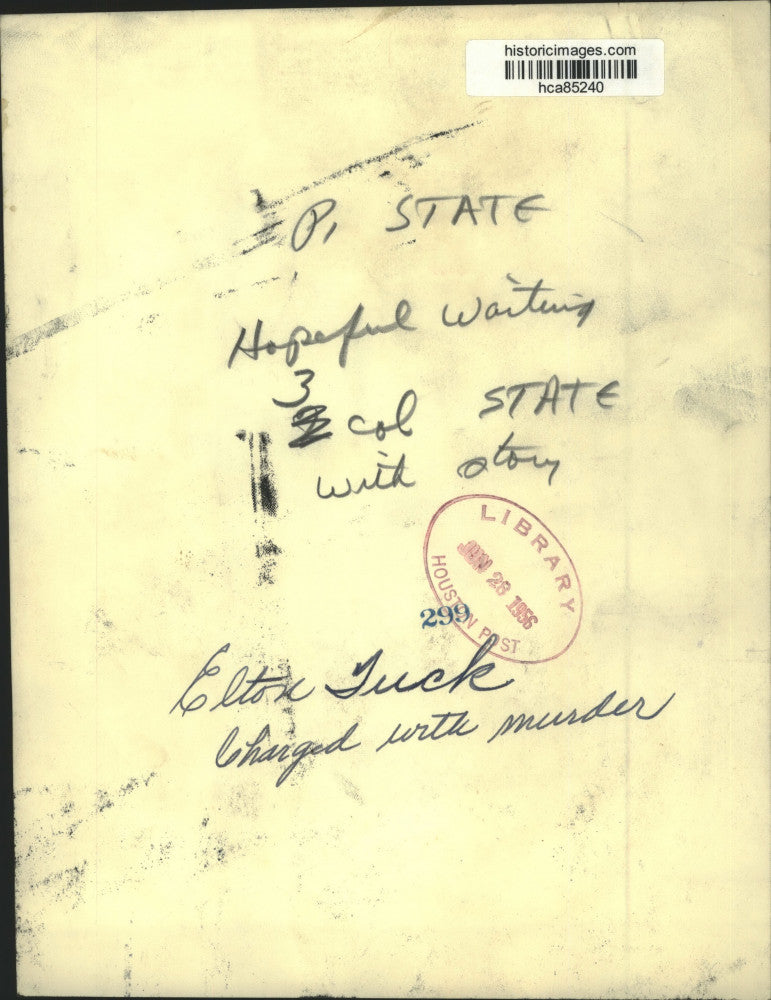 historicimages.com
hca85240
P, STATE
Hopeful Waiting
3 col STATE
with story
LIBRARY
JUN 28 1956
HOUSTON POST
299
Elton Tuck
Charged with murder